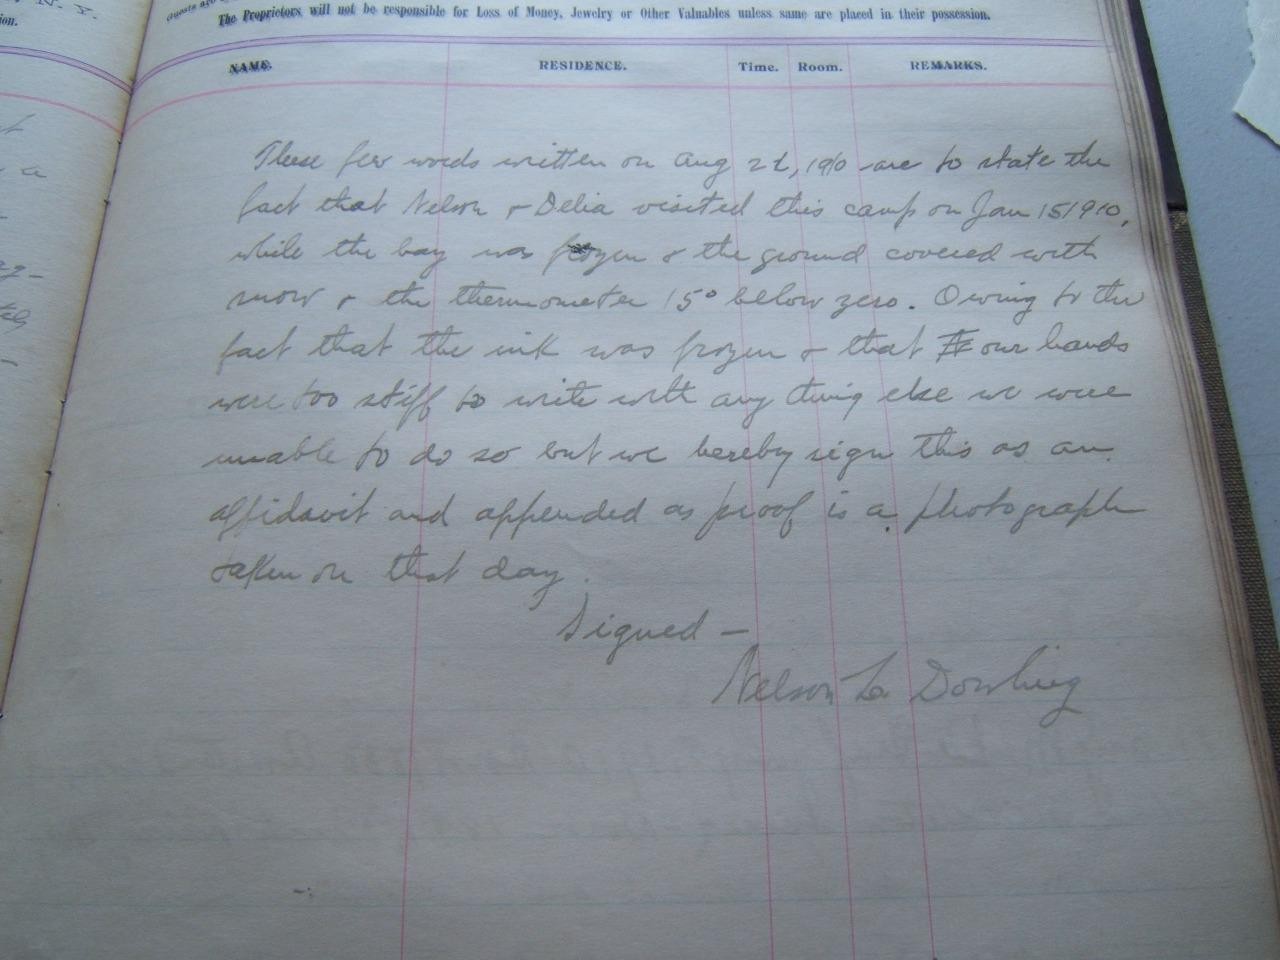 N. Y.
The Proprietors will not be responsible for Loss of Money, Jewelry or Other Valuables unless same are placed in their possession.
NAME. RESIDENCE. Time. Room. REMARKS.
These few words written on Aug 22, 1910 are to state the
fact that Nelson & Delia visited this camp on Jan 15 1910,
while the bay was frozen & the ground covered with
snow & the thermometer 15° below zero. Owing to the
fact that the ink was frozen & that our hands
were too stiff to write with any thing else we were
unable to do so but we hereby sign this as an
affidavit and appended as proof is a photograph
taken on that day.
Signed —
Nelson L. Dowling